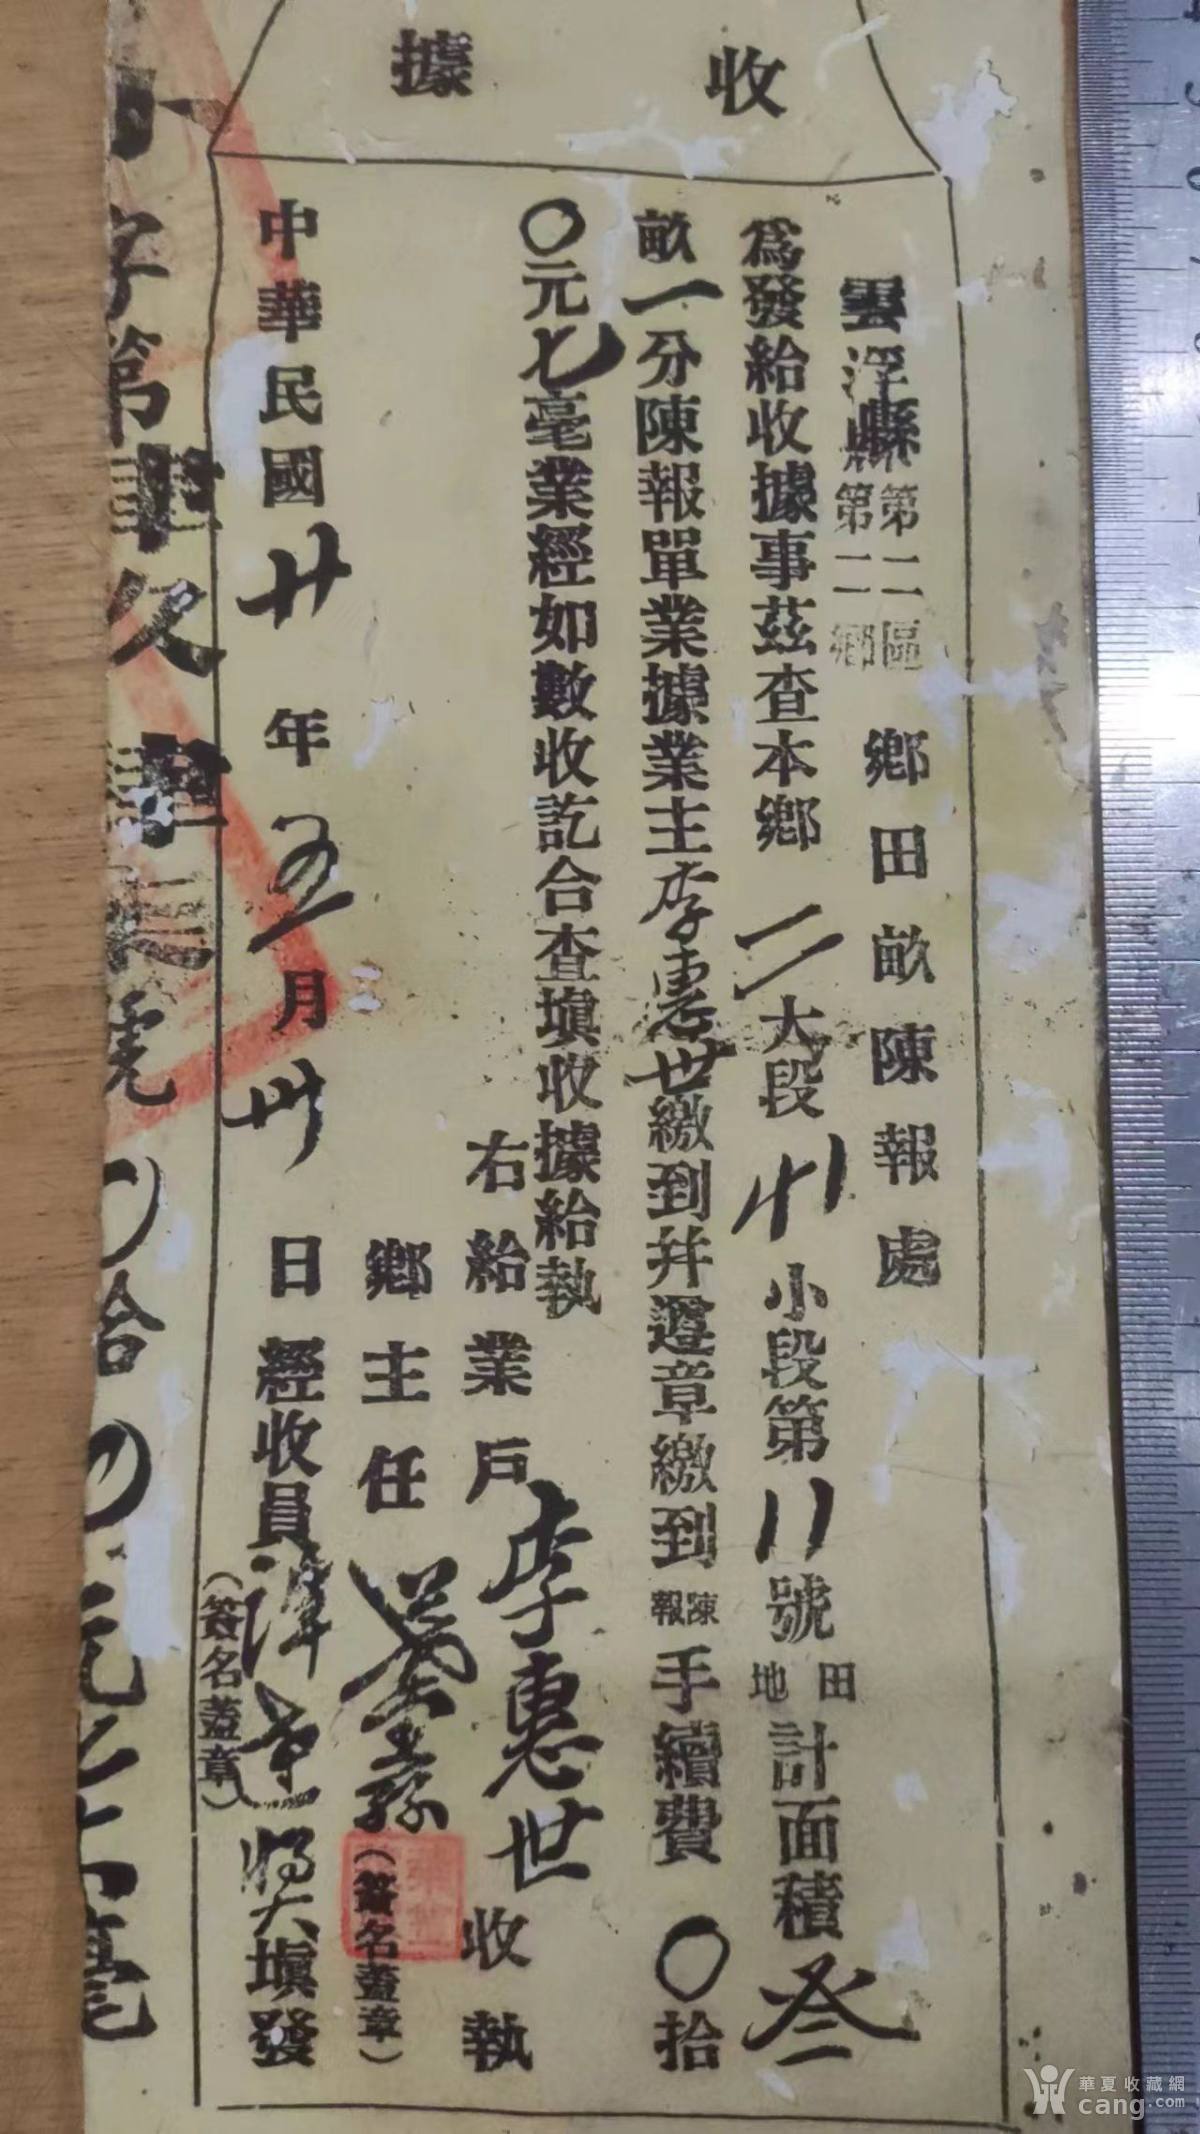 收據
雲浮縣第二區第二鄉鄉田畝陳報處
為發給收據事茲查本鄉二大段 小段第 號田地計面積叁
畝一分陳報單業據業主李惠世繳到并遵章繳到陳報手續費〇拾
〇元七毫業經如數收訖合查填收據給執
右給業戶李惠世收執
鄉主任 (簽名蓋章)
中華民國廿年五月卅日經收員 填發
(簽名蓋章)
字第 號〇拾〇元七 毫
華夏收藏網
cang.com